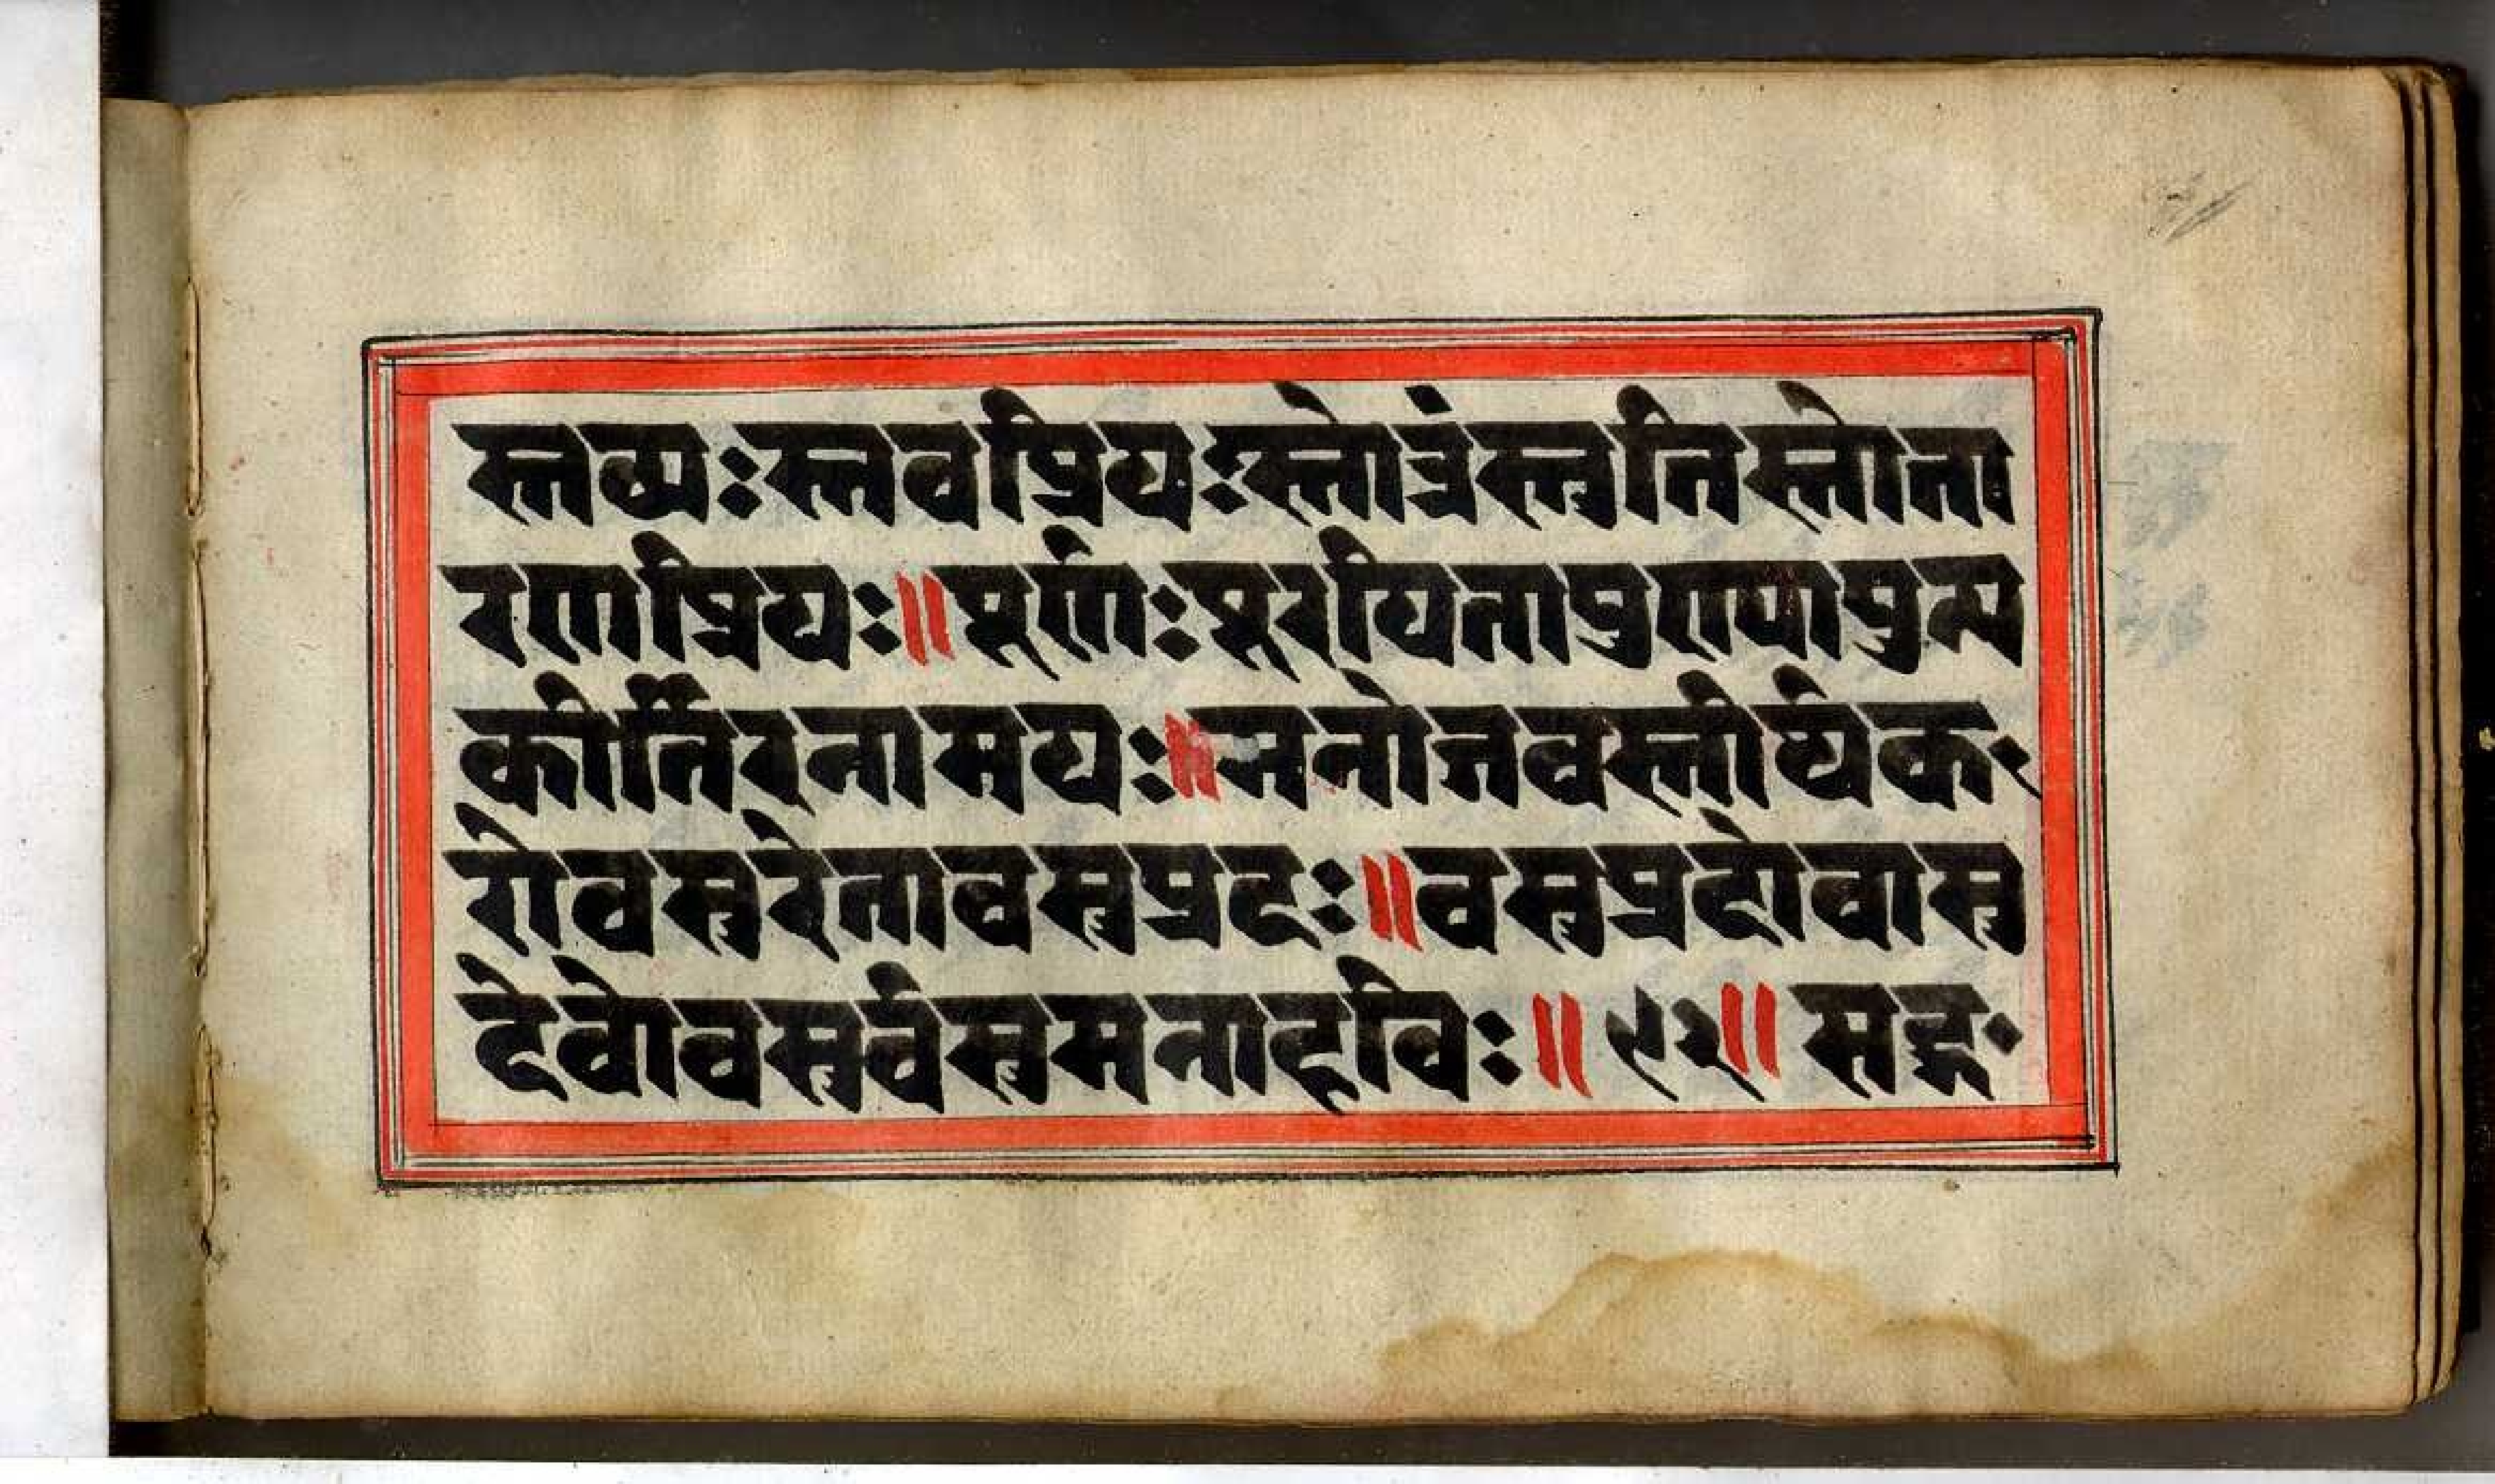 स्तव्यः स्तवप्रियः स्तोत्रं स्तुति स्तोता
रणप्रियः ॥ पूर्णः पूरयिता पुण्यः पुण्य
कीर्तिरनामयः ॥ मनोजवस्तीर्थक
रो वसुरेता वसुप्रदः ॥ वसुप्रदो वासु
देवो वसुर्वसुमना हविः ॥ ९२ ॥ सद्ग